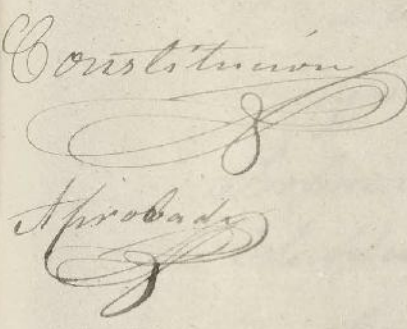 Constitución
Aprobada